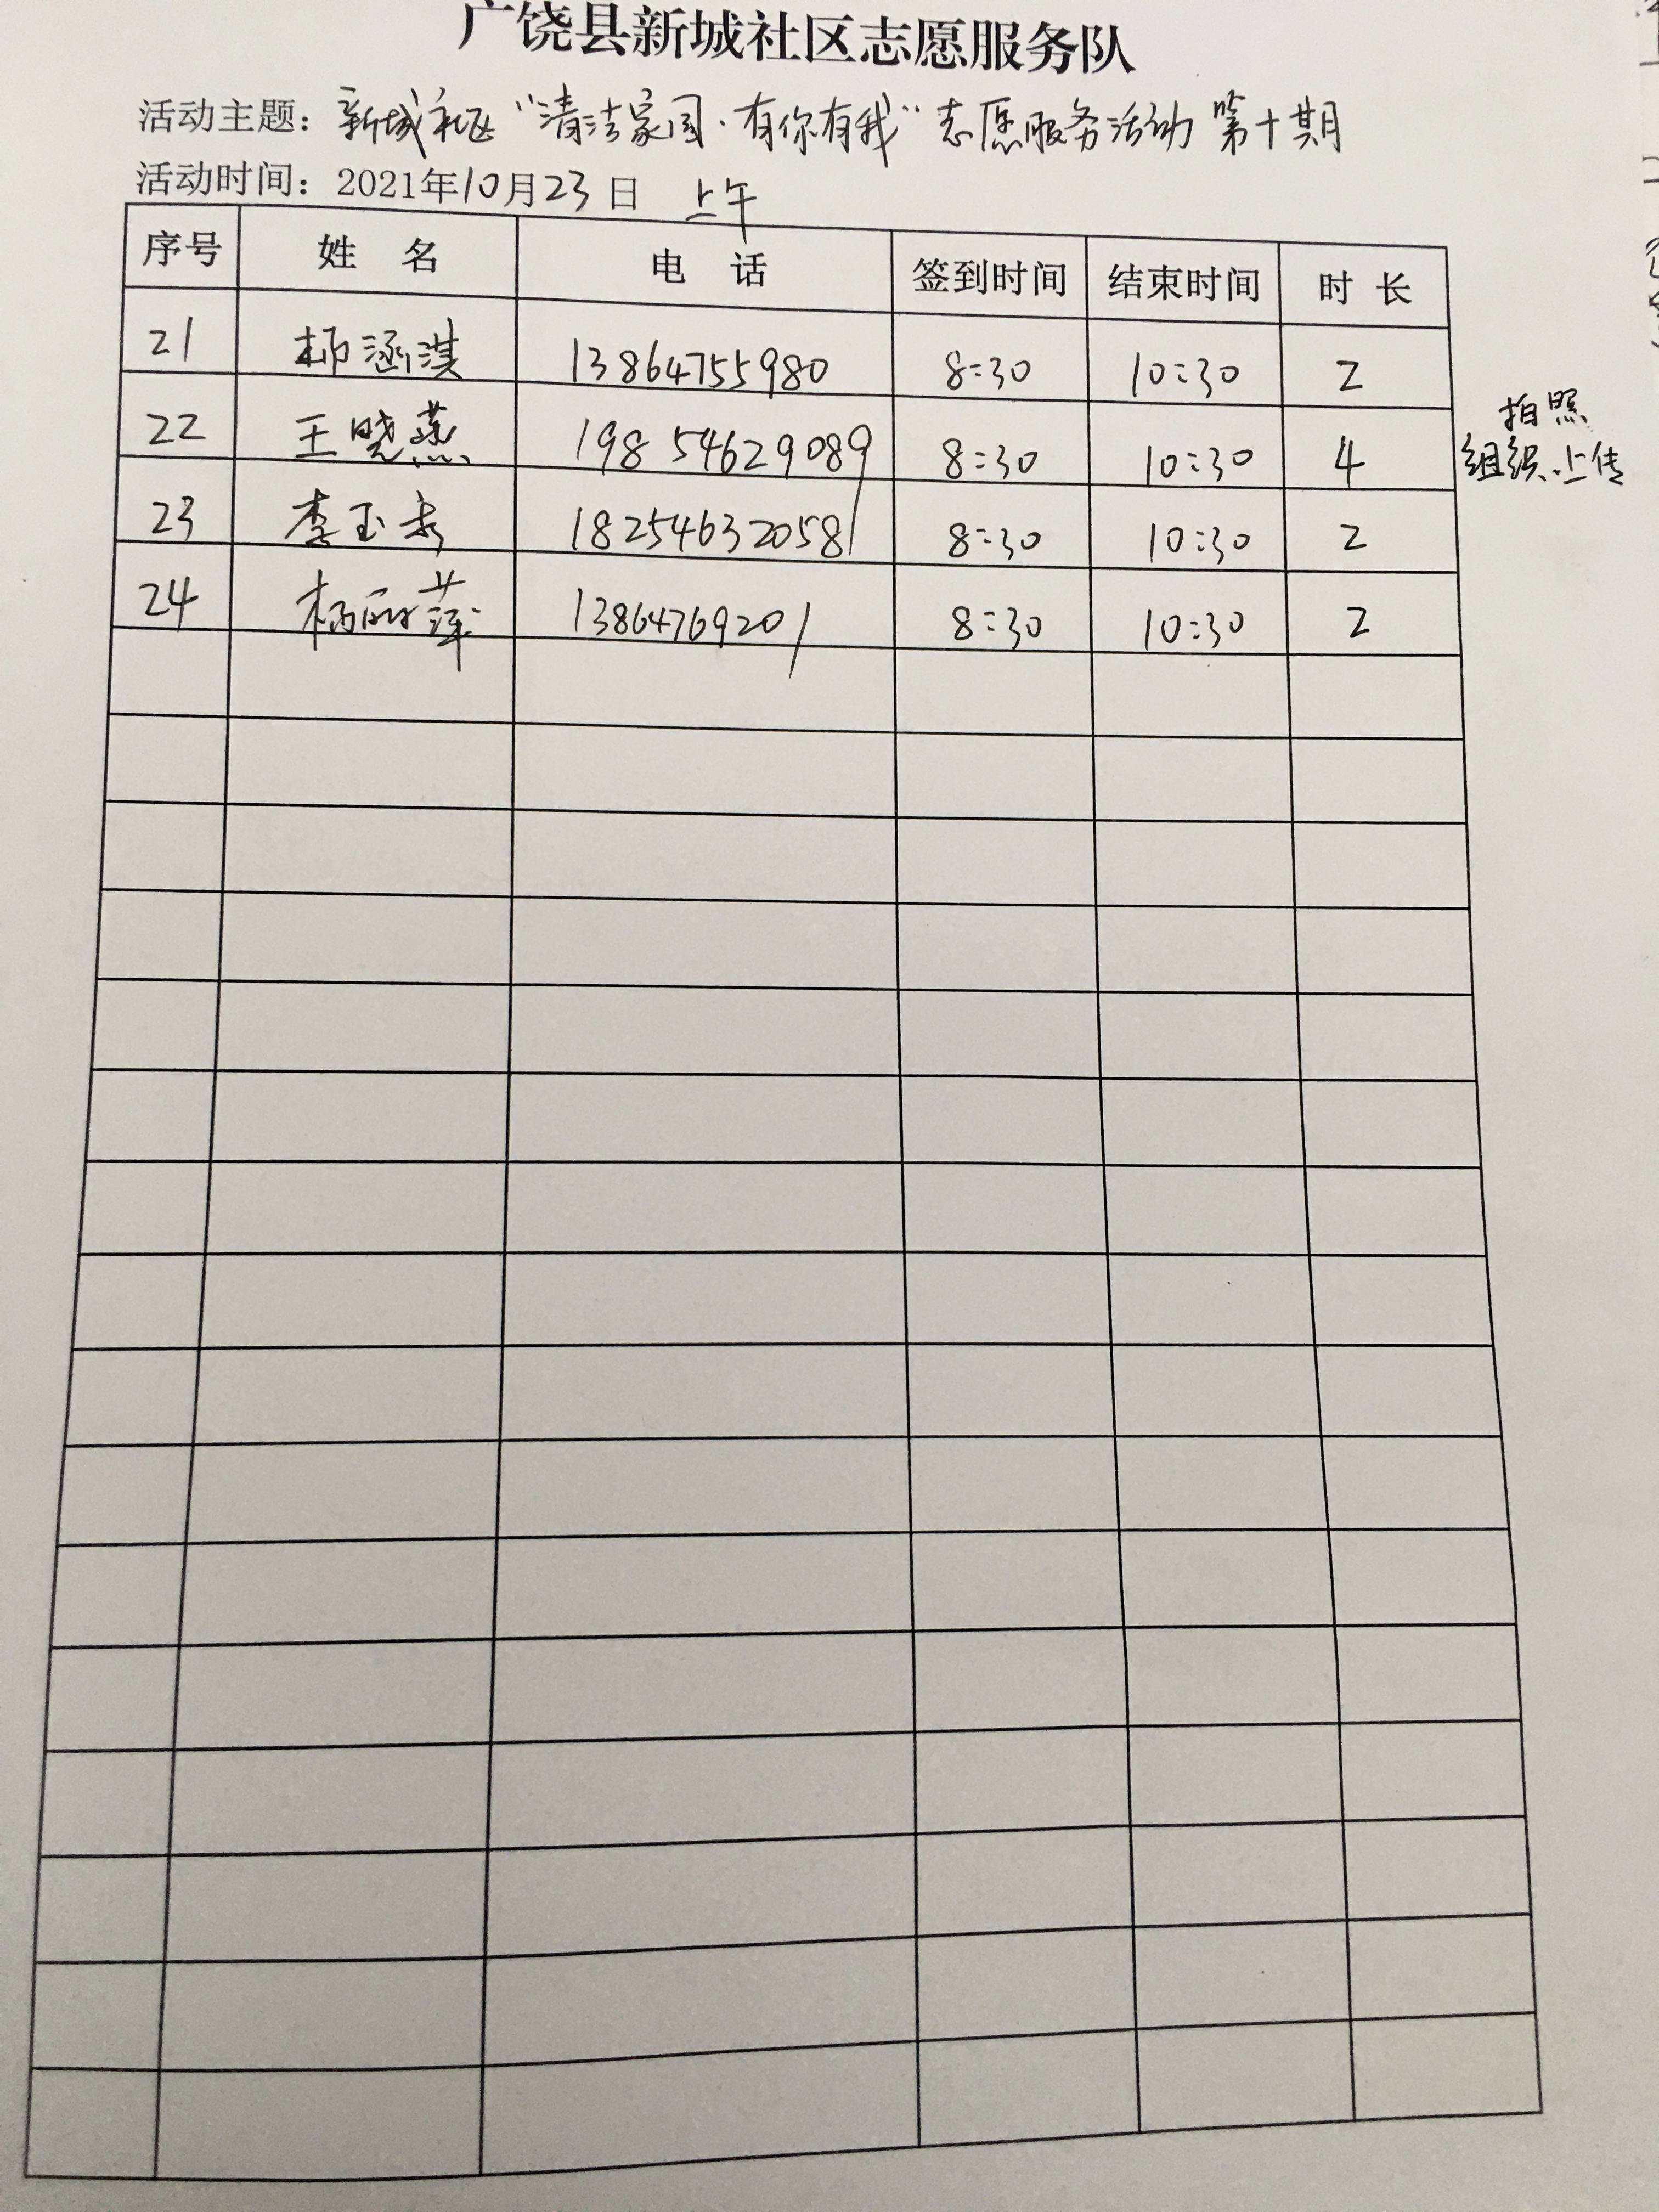 广饶县新城社区志愿服务队
活动主题：新城社区“清洁家园·有你有我”志愿服务活动 第十期
活动时间：2021年10月23日 上午
序号 姓 名 电 话 签到时间 结束时间 时 长
21 柳涵淇 13864755980 8:30 10:30 2
22 王晓燕 19854629089 8:30 10:30 4 拍照
组织.上传
23 李玉秀 18254632058 8:30 10:30 2
24 杨丽萍 13864769201 8:30 10:30 2